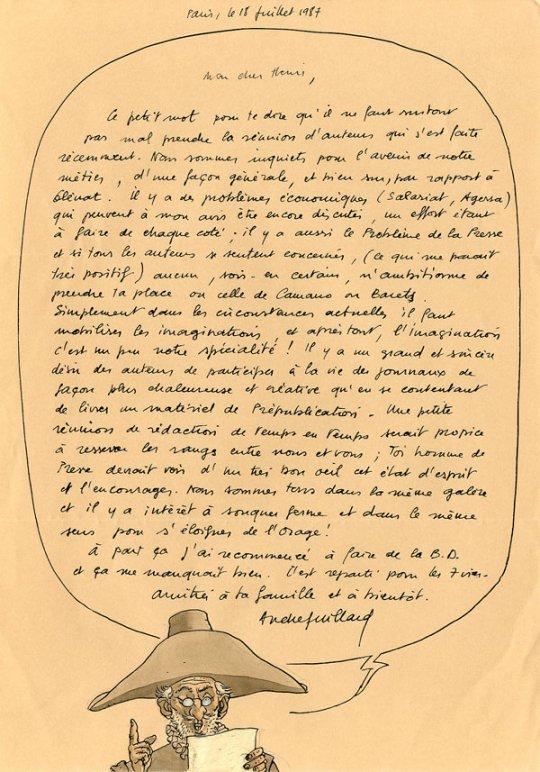 Paris, le 18 Juillet 1987
Mon cher Henri,
Ce petit mot pour te dire qu'il ne faut surtout
pas mal prendre la réunion d'auteurs qui s'est faite
récemment. Nous sommes inquiets pour l'avenir de notre
métier, d'une façon générale, et bien sur, par rapport à
Glénat. Il y a des problèmes économiques (Salariat, Agessa)
qui peuvent à mon avis être encore discutés, un effort étant
à faire de chaque coté ; il y a aussi le Problème de la Presse
et si tous les auteurs se sentent concernés, (ce qui me parait
très positif) aucun, sois-en certain, n'ambitionne de
prendre ta place ou celle de Camano ou Barets.
Simplement dans les circonstances actuelles il faut
mobiliser les imaginations et après tout, l'imagination
c'est un peu notre spécialité ! Il y a un grand et sincère
désir des auteurs de participer à la vie des journaux de
façon plus chaleureuse et créative qu'en se contentant
de livrer un matériel de Prépublication. Une petite
réunion de rédaction de temps en temps serait propice
à resserrer les rangs entre nous et vous ; Toi homme de
Presse devrait voir d'un très bon oeil cet état d'esprit
et l'encourager. Nous sommes tous dans la même galère
et il y a intérêt à souquer ferme et dans le même
sens pour s'éloigner de l'Orage !
à part ça j'ai recommencé à faire de la B.D.
et ça me manquait bien. C'est reparti pour les 7 vies.
Amitiés à ta famille et à bientôt.
André Juillard